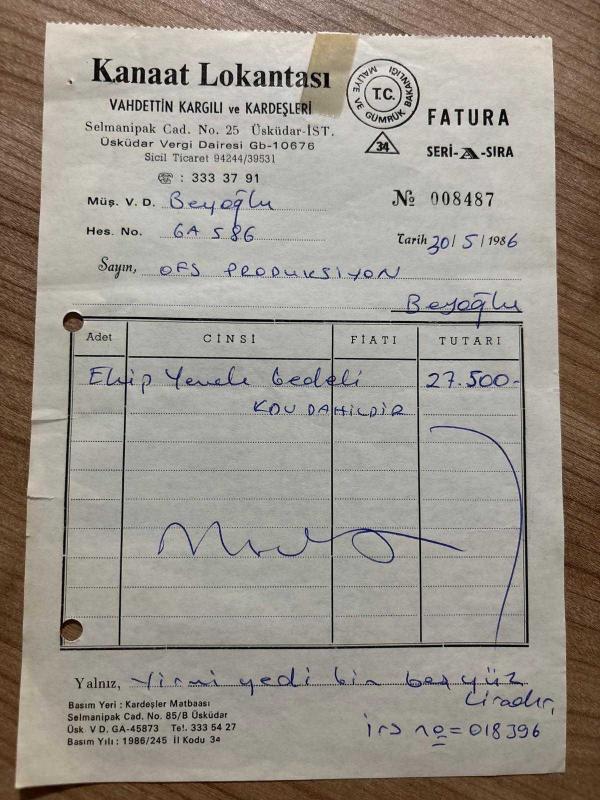 Kanaat Lokantası
VAHDETTİN KARGILI ve KARDEŞLERİ
Selmanipak Cad. No. 25 Üsküdar-İST.
Üsküdar Vergi Dairesi Gb-10676
Sicil Ticaret 94244/39531
☎ : 333 37 91
T.C.
MALİYE VE GÜMRÜK BAKANLIĞI
34
FATURA
SERİ-A-SIRA
Müş. V. D. Beyoğlu
№ 008487
Hes. No. GA 586
Tarih 30/5/1986
Sayın, OFS PRODUKSİYON
Beyoğlu
Adet CİNSİ FİATI TUTARI
Ekip Yemek bedeli 27.500-
KDV DAHİLDİR
Yalnız, Yirmi yedi bin beş yüz
Liradır,
irs no = 018396
Basım Yeri : Kardeşler Matbaası
Selmanipak Cad. No. 85/B Üsküdar
Üsk. V D. GA-45873 Tel. 333 54 27
Basım Yılı : 1986/245 İl Kodu 34